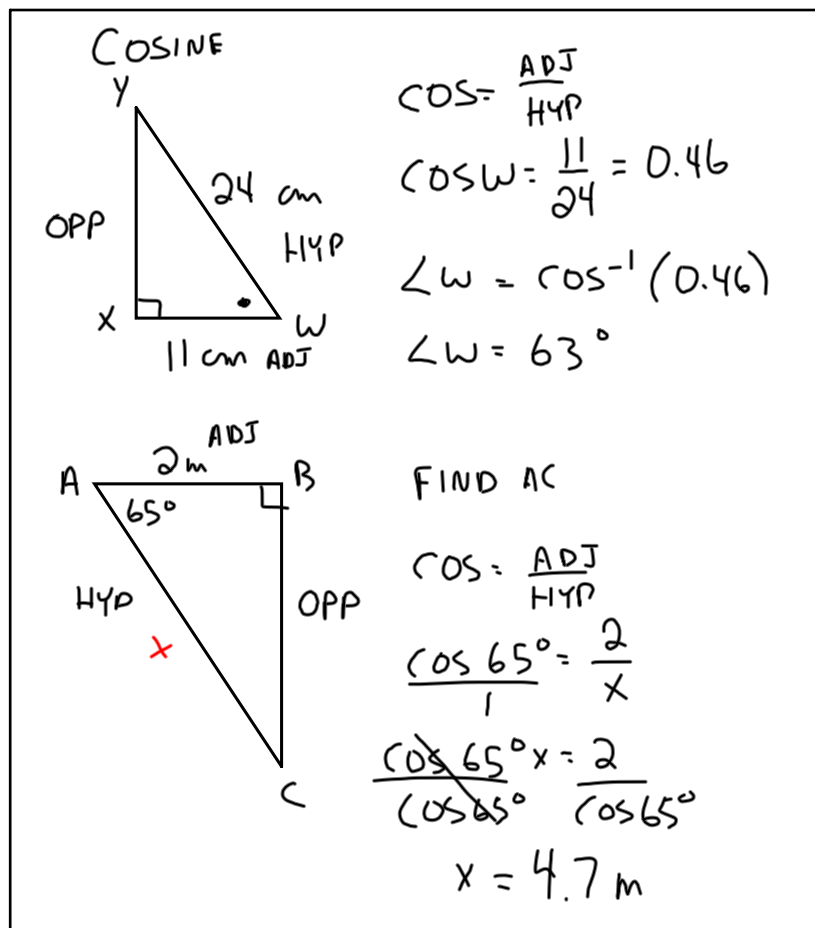 COSINE
Y
24 cm
OPP
HYP
X
W
11 cm ADJ
COS = ADJ/HYP
COS W = 11/24 = 0.46
∠W = COS⁻¹ (0.46)
∠W = 63°
2m ADJ
A
B
65°
HYP
OPP
x
C
FIND AC
COS = ADJ/HYP
COS 65°/1 = 2/x
COS 65° x/COS 65° = 2/COS 65°
x = 4.7 m